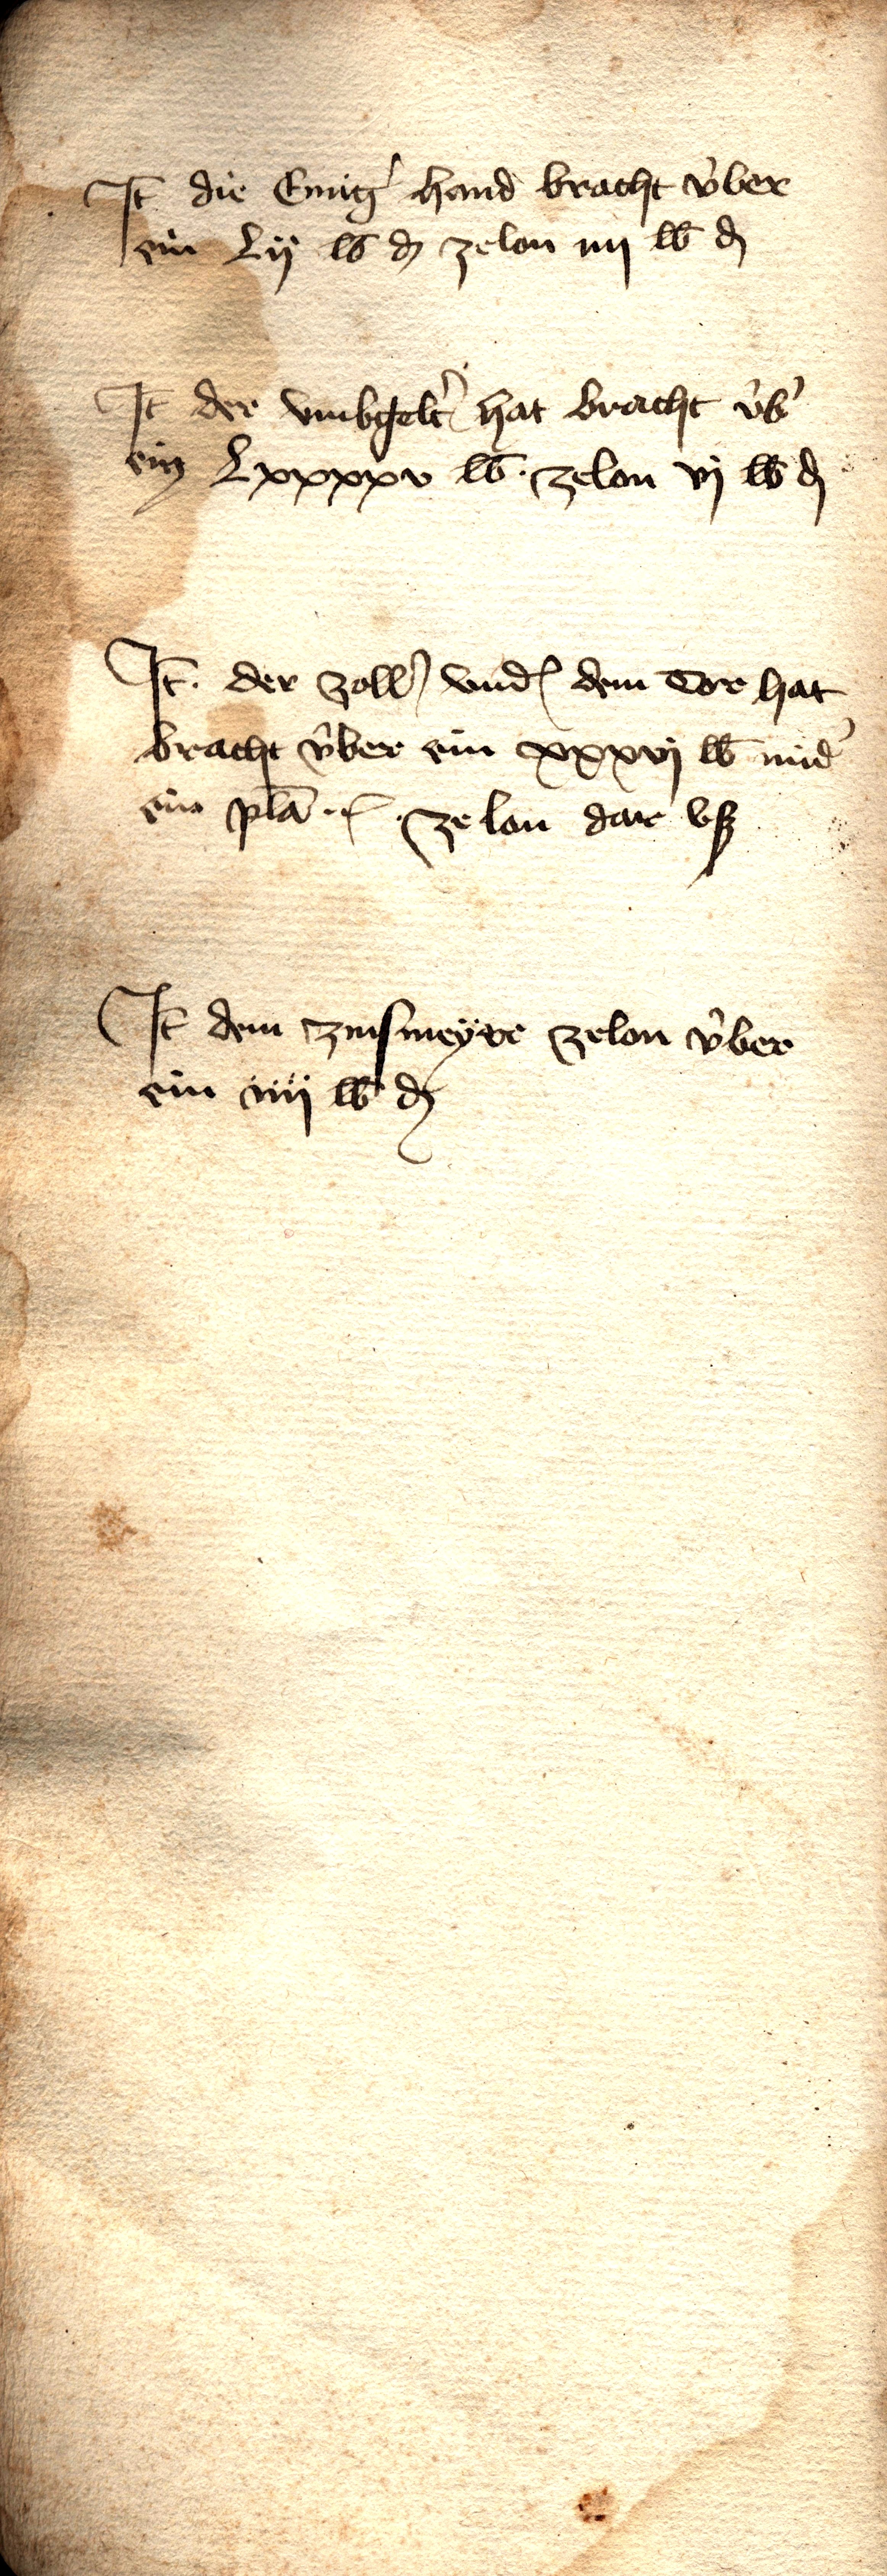 It die Einig' hand bracht v̊ber
ein Lij lb d zelon iiij lb d
It der vmbgelt' hat bracht v̊b'
ein Lxxxxv lb. zelon vj lb d
It. der zoll' vnd' dem Tor hat
bracht v̊ber ein xxxvj lb mīd'
ein pla. . zelon dar vß
It dem zinsmeyer zelon v̊ber
ein iiij lb d